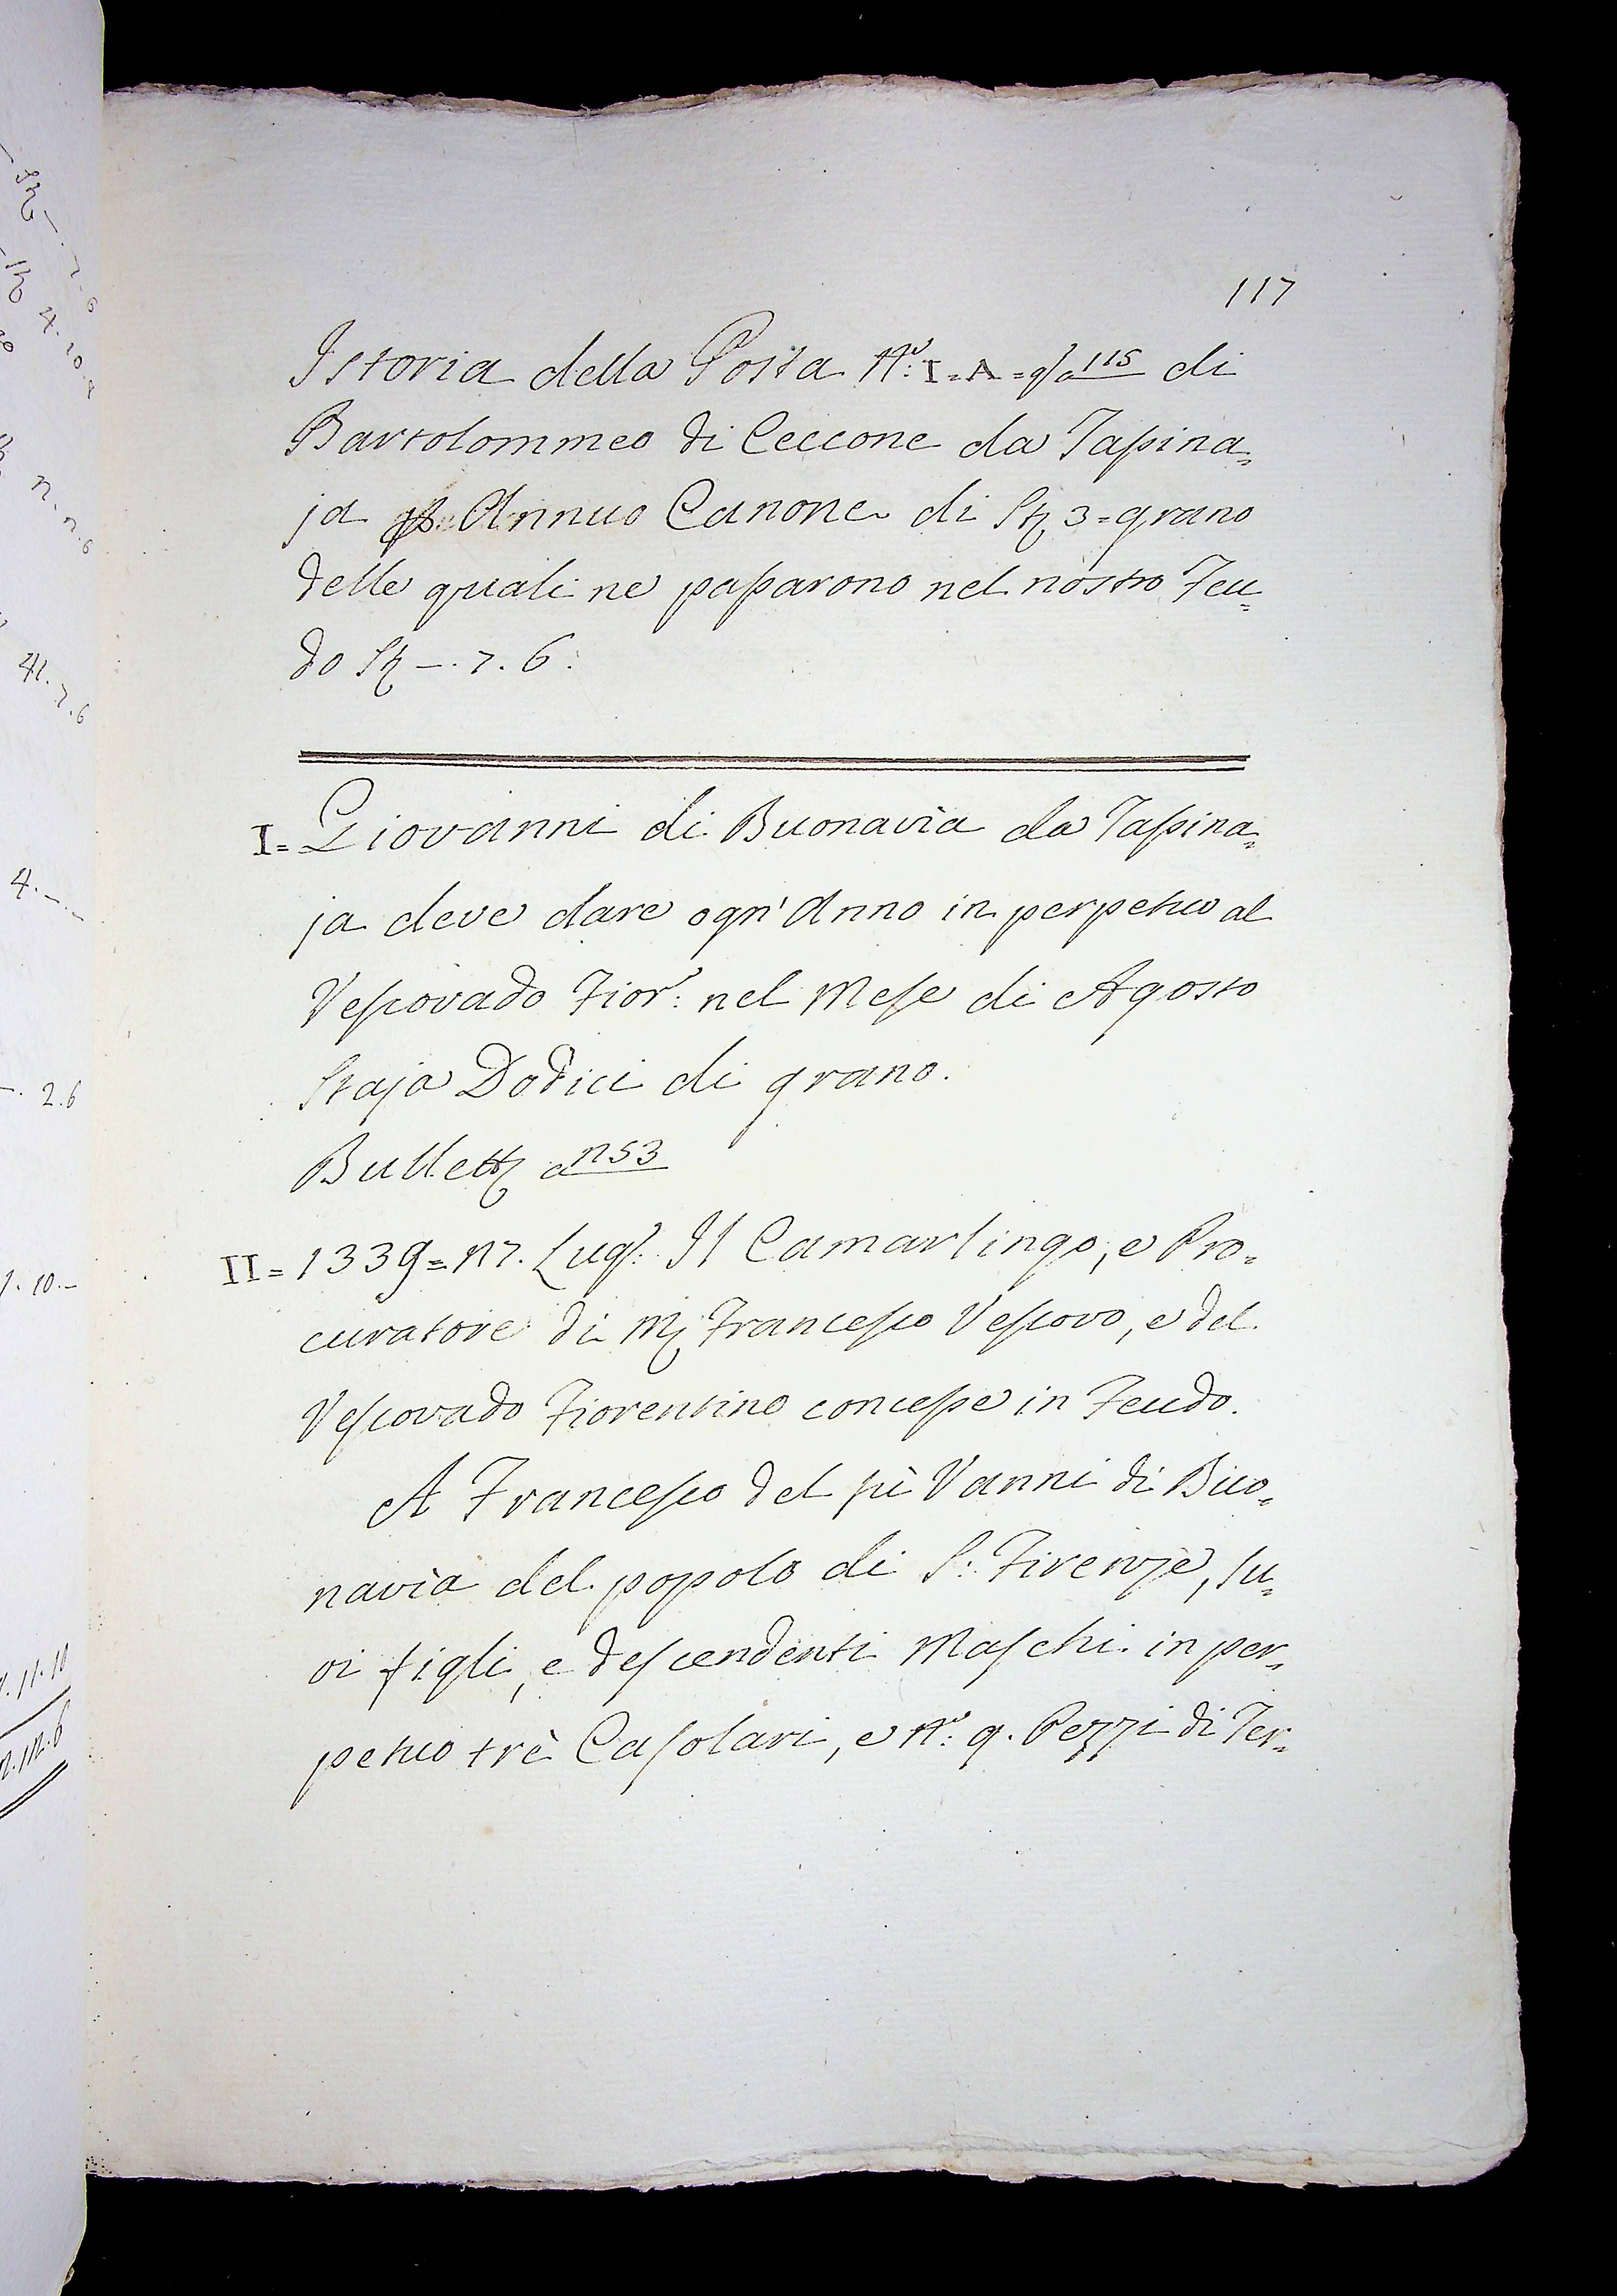 117
Istoria della Posta N.º: I = A = q/a 115 di
Bartolommeo di Ceccone da Tassina=
ja p Annuo Canone di St 3 = grano
delle quali ne passarono nel nostro Feu=
do St —. 7. 6.
I = Giovanni di Buonavia da Tassina=
ja deve dare ogn' Anno in perpetuo al
Vescovado Fior.º: nel Mese di Agosto
Staja Dodici di grano.
Bullett a 153
II = 1339 = 17. Lugl.: Il Camarlingo, e Pro=
curatore di M Francesco Vescovo, e del
Vescovado Fiorentino concesse in Feudo.
A Francesco del fù Vanni di Buo=
navia del popolo di S: Firenze, su=
oi figli, e descendenti Maschi in per=
petuo trè Casolari, e N.º: 9. Pezzi di Ter=
-. 7. 6
4. 10. 8
12. 12. 6
41. 7. 6
4. - -
-. 2. 6